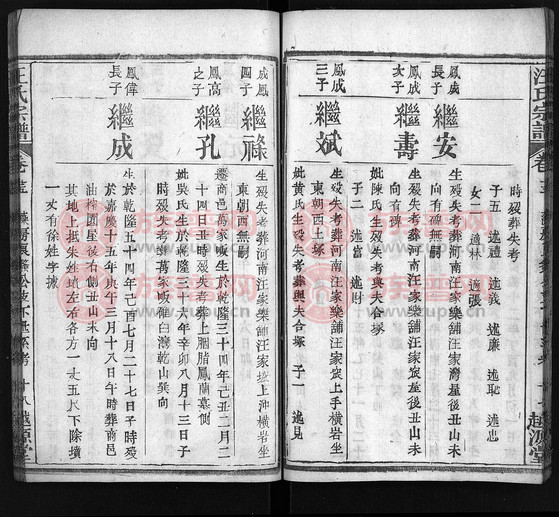 汪氏宗譜
時歿葬失考
子五 述禮 述義 述廉 述恥 述忠
女二 適林 適張
鳳成長子
繼安
生歿失考葬河南汪家樂舖汪家灣屋後丑山未
向有碑無嗣
鳳成次子
繼壽
生歿失考葬河南汪家樂舖汪家屋後丑山未
向有碑
妣陳氏生歿失考與夫合塚
子二 述富 述財
鳳成三子
繼斌
生歿失考葬河南汪家樂舖汪家上手橫岩坐
東朝西土塚
妣黃氏生歿失考葬與夫合塚 子一 述見
越源堂
成鳳四子
繼祿
生歿失考葬河南汪家樂舖汪家上沖橫岩坐
東朝西無嗣
鳳高之子
繼孔
遷商邑萬家畈生於乾隆三十四年己丑二月二
十四日丑時歿失考葬上胭脂鳳蘭墓側
妣吳氏生於乾隆三十六年辛卯八月十三日子
時歿失考葬萬家畈碓臼灣乾山巽向
鳳偉長子
繼成
生於乾隆五十四年己酉七月二十七日子時歿
於嘉慶十五年庚午三月十八日午時葬商邑
油榨園屋後右側丑山未向
其地上抵朱姓墳左右各方一丈五尺下除墳
一丈有徐姓字據
汪氏宗譜
卷
十八 越源堂